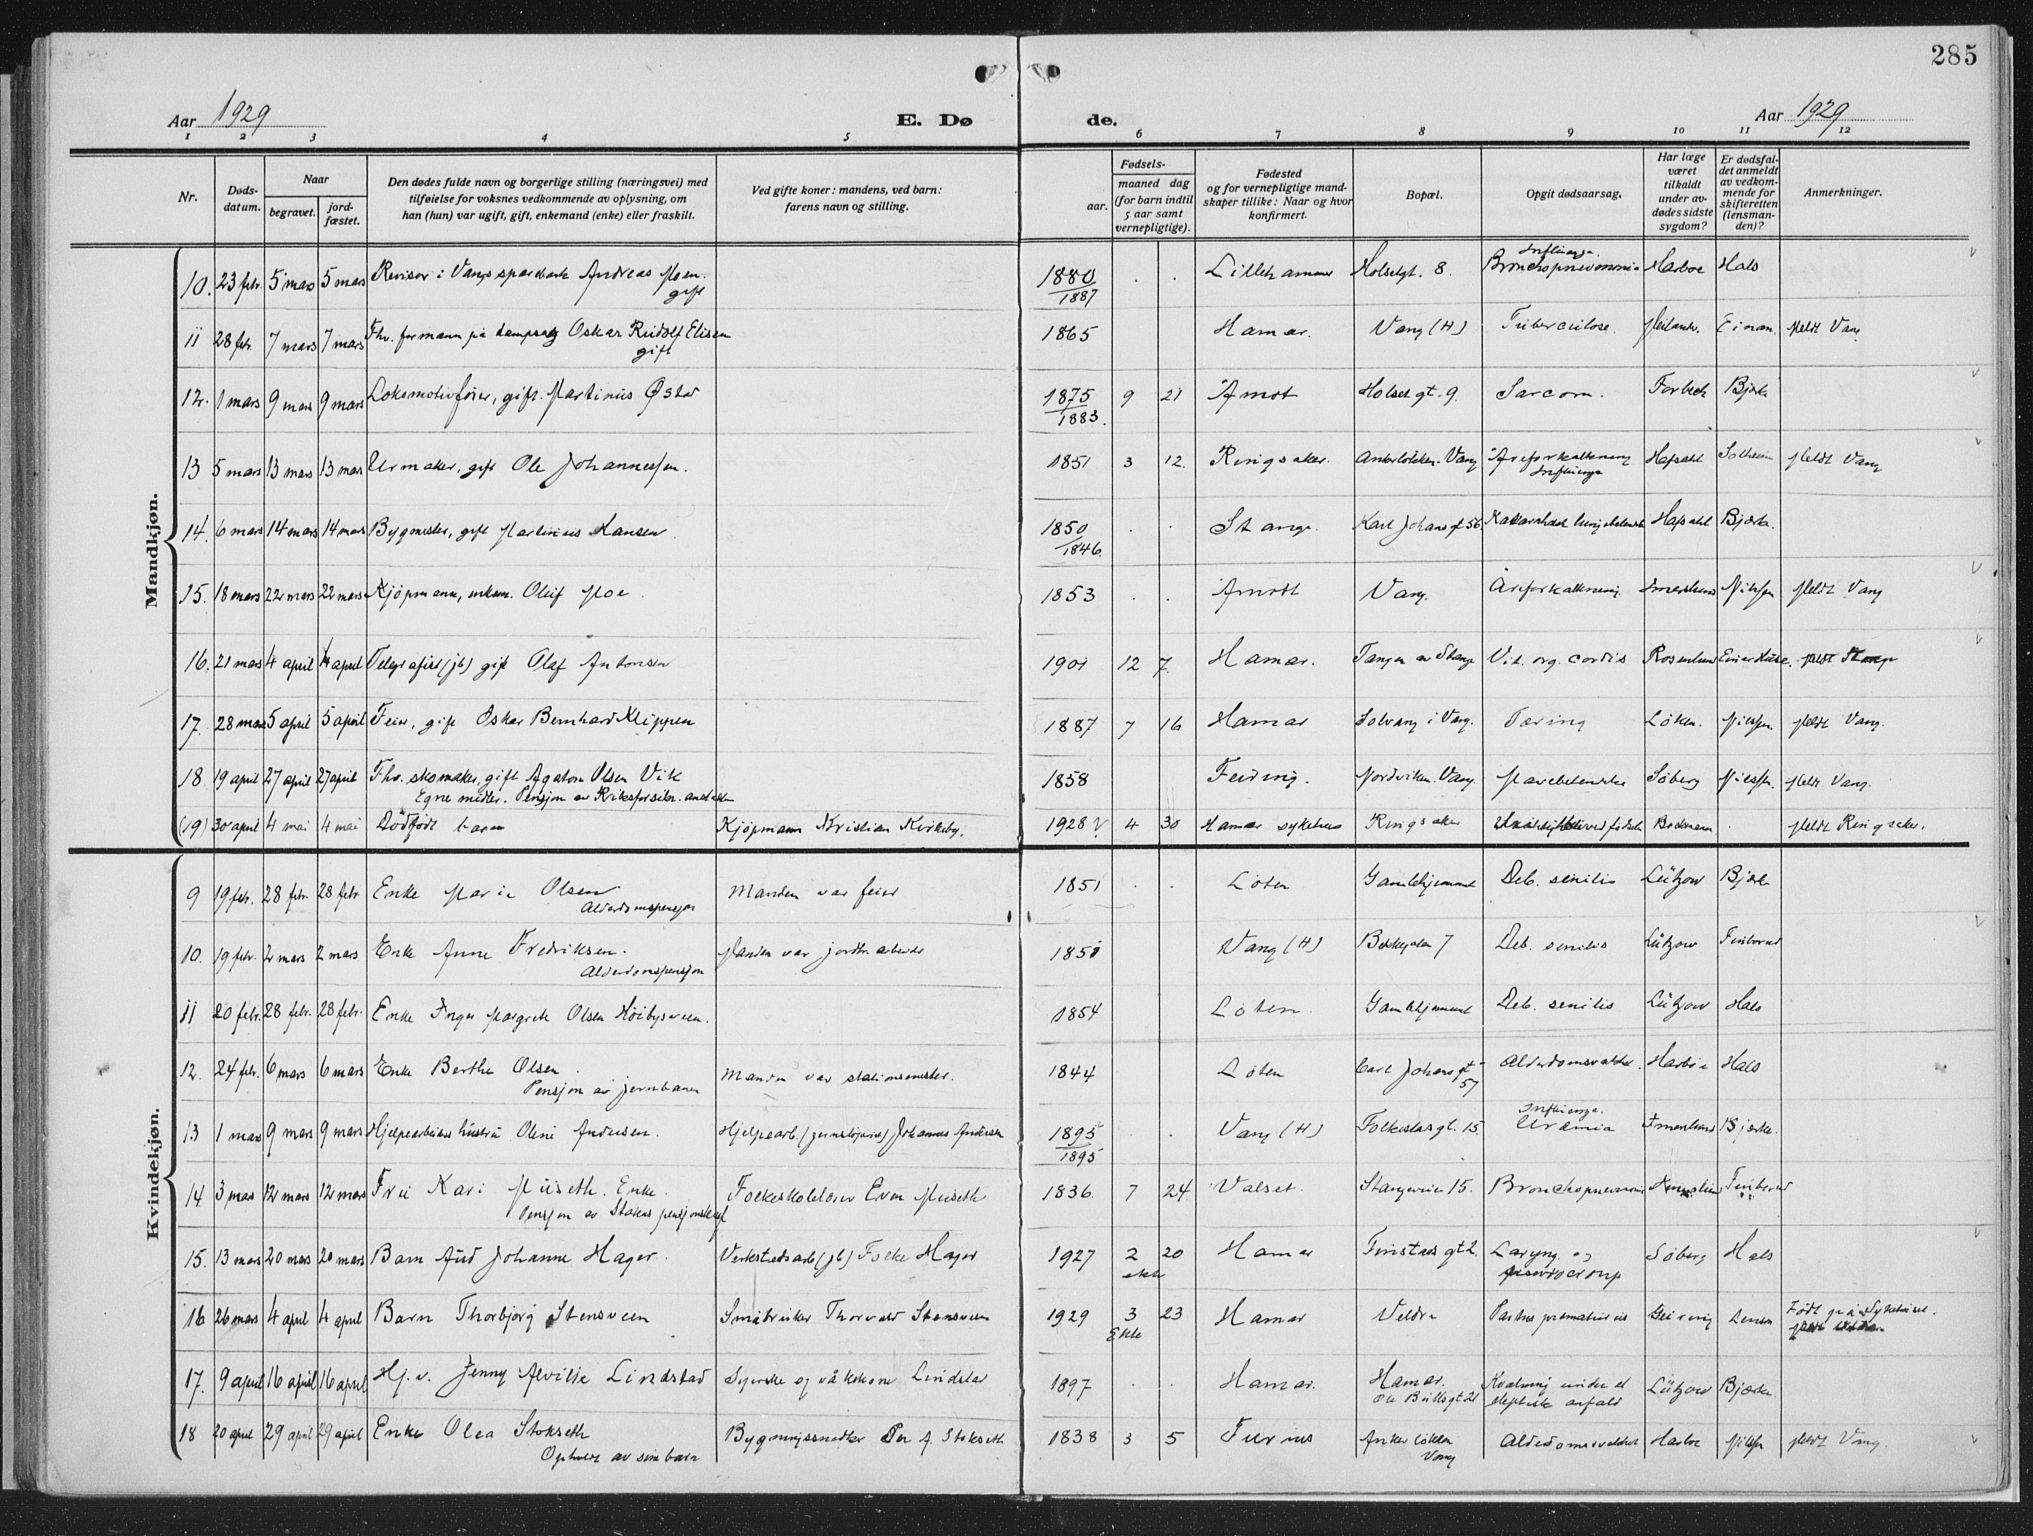 285
Aar 1929 E. Dø de. Aar 1929
1 2 3 4 5 6 7 8 9 10 11 12
Nr.
Døds-
datum.
Naar
begravet.
jord-
fæstet.
Den dødes fulde navn og borgerlige stilling (næringsvei) med
tilføielse for voksnes vedkommende av oplysning, om
han (hun) var ugift, gift, enkemand (enke) eller fraskilt.
Ved gifte koner: mandens, ved barn:
farens navn og stilling.
Fødsels-
aar.
maaned dag
(for barn indtil
5 aar samt
vernepligtige).
Fødested
og for vernepligtige mand-
skaper tillike: Naar og hvor
konfirmert.
Bopæl.
Opgit dødsaarsag.
Har læge
været
tilkaldt
under av-
dødes sidste
sygdom?
Er dødsfal-
det anmeldt
av vedkom-
mende for
skifteretten
(lensman-
den)?
Anmerkninger.
Mandkjøn.
10. 23 febr. 5 mars 5 mars Revisor i Vangs sparebank Andreas Moen. gift 1880/1887 Lillehammer Holsetgt. 8. Influenza. Bronchopneumonia Harboe Hals
11 28 febr. 7 mars 7 mars Fhv. formann på dampsag Oskar Rudolf Elisen gift 1865 Hamar. Vang (H) Tuberculose. Einan. Meldt Vang
12. 1 mars 9 mars 9 mars Lokomotivfører, gift. Martinus Østad 1875/1883. 9 21 Åmot Holsetgt. 9. Sarcom. Forbech Bjerke
13 5 mars 13 mars 13 mars Urmaker, gift Ole Johannessen. 1851 3 12. Ringsaker. Ankerløkken. Vang Åreforkalkning Influenza Hafsahl Solheim Meldt Vang
14. 6 mars 14 mars 14 mars Bygmester, gift Martinus Hansen. 1850/1846. Stange. Karl Johans gt 56 Katarrhalsk lungebetennelse Hafsahl Bjerke.
15. 18 mars 22 mars 22 mars Kjøpmann, enkem. Oluf Moe. 1853 Åmot Vang. Åreforkalkning. Imerslund Nilssen Meldt Vang
16. 21 mars 4 april 4 april Telegrafist (jb) gift Olaf Antonsen 1901 12 7. Hamar. Tangen av Stange Vit. org. cordis Rosenlund Meldt Stange
17. 28 mars 5 april 5 april Feier, gift Oskar Bernhard Klippen 1887 7 16 Hamar Solvang i Vang. Tæring Løken. Nilssen. Meldt Vang.
18 19 april 27 april 27 april Fhv. skomaker, gift Agaton Olsen Vik
Egne midler. Pensjon av Riksforsikr.anstalten 1858 Feiring. Nordviken. Vang. Mavebetennelse Søberg Nilssen. Meldt Vang.
(19) 30 april 4 mai 4 mai Dødfødt barn Kjøpmann Kristian Kirkeby. 1928 4 30 Hamar sykehus Ringsaker Beckmann Meldt Ringsaker.
Kvindekjøn.
9 19 febr. 28 febr. 28 febr Enke Marie Olsen. Alderdomspensjon Manden var feier 1851 Løten Gamlehjemmet Deb. senilis Lützow Bjerke
10. 19 febr. 2 mars 2 mars Enke Anne Fredriksen. Alderdomspensjon Manden var jordbr. arbeider 1850 Vang (H) Bekkegaten 7 Deb. senilis Lützow Finborud
11 20 febr. 28 febr. 28 febr. Enke Inger Margrete Olsen Høibysveen. 1854 Løten. Gamlehjemmet Deb. senilis Lützow Hals
12. 24 febr. 6 mars 6 mars Enke Berthe Olsen. Pensjon av jernbanen Manden var stationsmester. 1844 Løten Carl Johans gt 57 Alderdomssvakhet. Harboe Hals
13 1 mars 9 mars 9 mars Hjelpearbeiders hustru Oline Andersen. Hjelpearb. Johannes Andersen 1895/1895 Vang (H) Folkestadgt. 15. Influenza. Uræmia Imerslund Bjerke.
14 3 mars 12 mars 12 mars Fru Kari Museth. Enke. Pensjon av Statens pensjonskasse Folkeskolelærer Even Museth 1836. 7 24. Valset. Stangeveien 15. Bronchopneumoni Imerslund Finborud
15. 13 mars 20 mars 20 mars Barn Aud Johanne Hager. Verkstedsarb (jb) Folke Hager 1927 2 20 ekte Hamar Finstadsgt 2. Laryng. og pseudocroup Søberg Hals
16 26 mars 4 april 4 april Barn Thorbjørg Stensveen Småbruker Thorvald Stensveen 1929 3 23 Ekte Hamar Veldre Partus præmaturus Geiring Jensen Født på Sykehuset.
17. 9 april 16 april 16 april Hj. v. Jenny Alvilde Lindstad Syerske og våkekone Lindstad 1897 Hamar. Hamar. Ole Bullsgt 21 Kvælning under et eleptisk anfald Lützow Bjerke.
18 20 april 29 april 29 april Enke Olea Stokseth Opholdt av sine barn Bygningssnedker Per A. Stokseth 1838 3 5 Furnes Ankerløkken Vang Alderdomssvakhet Harboe Nilssen Meldt Vang.